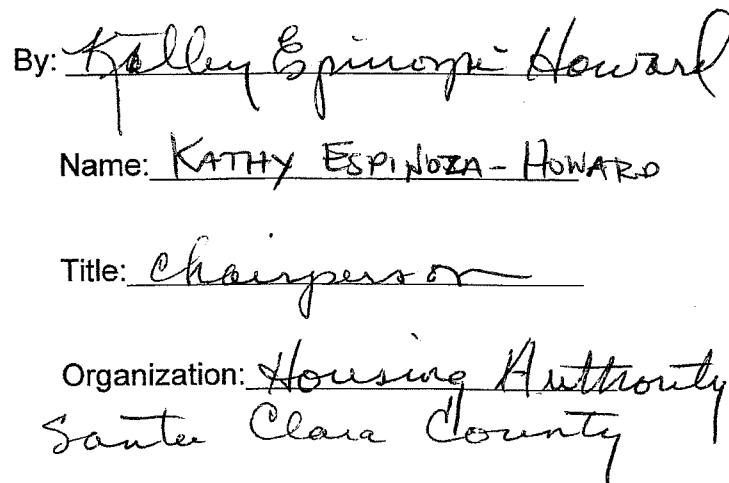 By: Kathy Espinoza Howard
Name: KATHY ESPINOZA-HOWARD
Title: Chairperson
Organization: Housing Authority
Santa Clara County